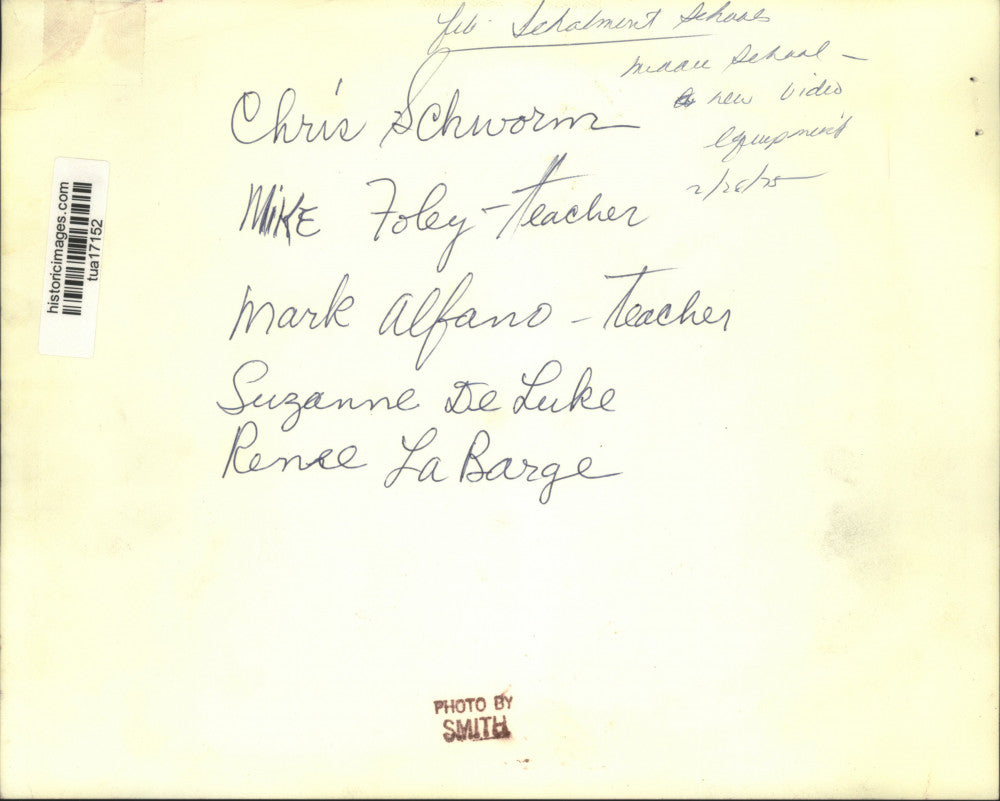 Schalmont Schools
Middle School -
new video
equipment
Chris Schworm
Mike Foley - Teacher
Mark Alfano - Teacher
Suzanne De Luke
Renee La Barge
historicimages.com
tua17152
PHOTO BY
SMITH